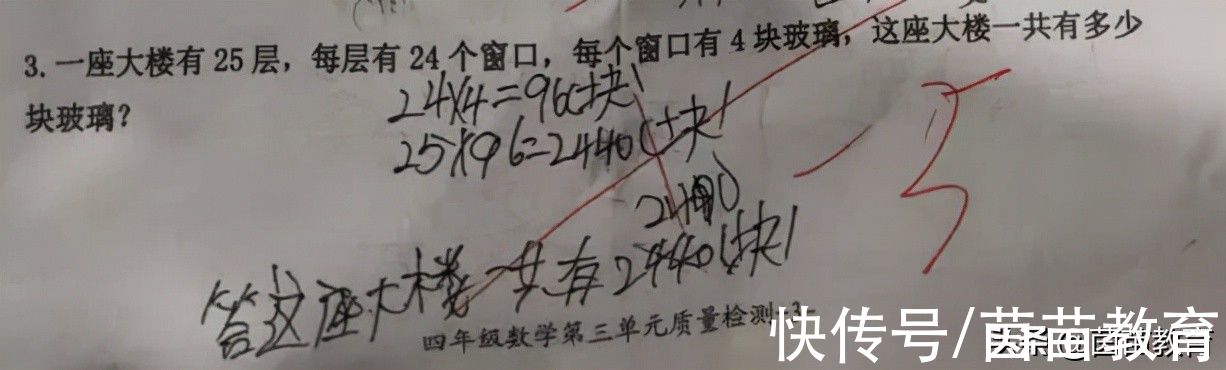 3. 一座大楼有 25 层，每层有 24 个窗口，每个窗口有 4 块玻璃，这座大楼一共有多少
块玻璃？
24×4=96(块)
25×96=2440(块)
答这座大楼一共有2440(块)
四年级数学第三单元质量检测-3-
快传号/茵茵教育
头条 @茵茵教育